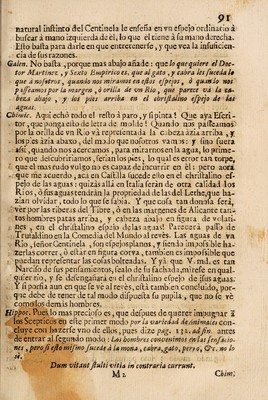 91
natural instinto del Centinela le enseña en vn espejo ordinario à
buscar à mano izquierda de el, lo que el tiene à su mano derecha.
Esto basta para darle en que entretenerse, y que vea la insuficien-
cia de sus razones.
Galen. No basta, porque mas abajo añade: que lo que quiere el Doc-
tor Martinez, y Sexto Empirico es, que al gato, y cabra les suceda lo
que à nosotros, quando nos miramos en estos espejos, ò quando nos
passeamos por la margen, ò orilla de vn Rio, que parece và la ca-
beza abajo, y los pies arriba en el christalino espejo de las
aguas.
Chimic. Aqui echò todo el resto à paro, y spinta! Que aya Escri-
tor, que ponga esto de letra de molde! Quando nos passeamos
por la orilla de vn Rio và representada la cabeza àzia arriba, y
los pies àzia abaxo, del modo que nosotros vamos: y sino fuera
assi, quando nos acercamos, para mirarnos en la agua, lo prime-
ro que descubririamos, serian los pies, lo qual es error tan torpe,
que el mas rudo vulgo no es capaz de incurrir en èl: pero aora
que me acuerdo, acà en Castilla sucede esso en el christalino es-
pejo de las aguas: quizàs allà en Italia seràn de otra calidad los
Rios, ò sus aguas tendràn la propriedad de las del Lethe, que ha-
zian olvidar, todo lo que se sabia. Y que cosa tan donosa serà,
ver por las riberas del Tibre, ò en las margenes de Alicante tan-
tos hombres patas arriba, y cabeza abajo en figura de volati-
nes, en el christalino espejo de las aguas! Pareceràn passo de
Trufaldino en la Comedia del Mundo al revès. Las aguas de vn
Rio, señor Centinela, son espejos planos, y siendo impossible ha-
zerlas correr, ò estàr en figura corva, tambien es impossible que
puedan representar las cosas bolteadas. Y yà que V.md. es tan
Narciso de sus pensamientos, sealo de su fachada, mirese en qual-
quier rio, y se desengañarà en el christalino espejo de sus aguas.
Y si posfia aun en que se vè al revès, està tambien concluido, por-
que debe de tener de tal modo dispuesta su pupila, que no se vè
como los demàs hombres.
Hippoc. Pues lo mas precioso es, que despues de querer impugnar à
los Scepticos en este primer modo por la variedad de animales con-
cluye con hazerse vno de ellos, pues dize pag. 132. ad fin. antes
de entrar al segundo modo: Los hombres convenimos en las sensacio-
nes, pero si esto mismo sucede à la mona, cabra, gato, perro, &c. no lo
sè.
Dum vitant stulti vitia in contraria currunt.
M 2
Chim.